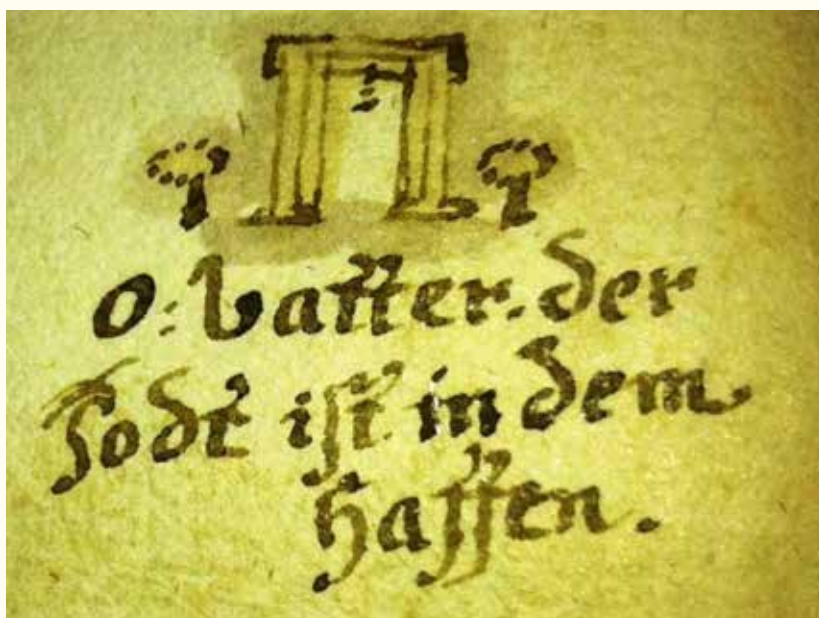 O: Vatter. der
Todt ist in dem
Haffen.